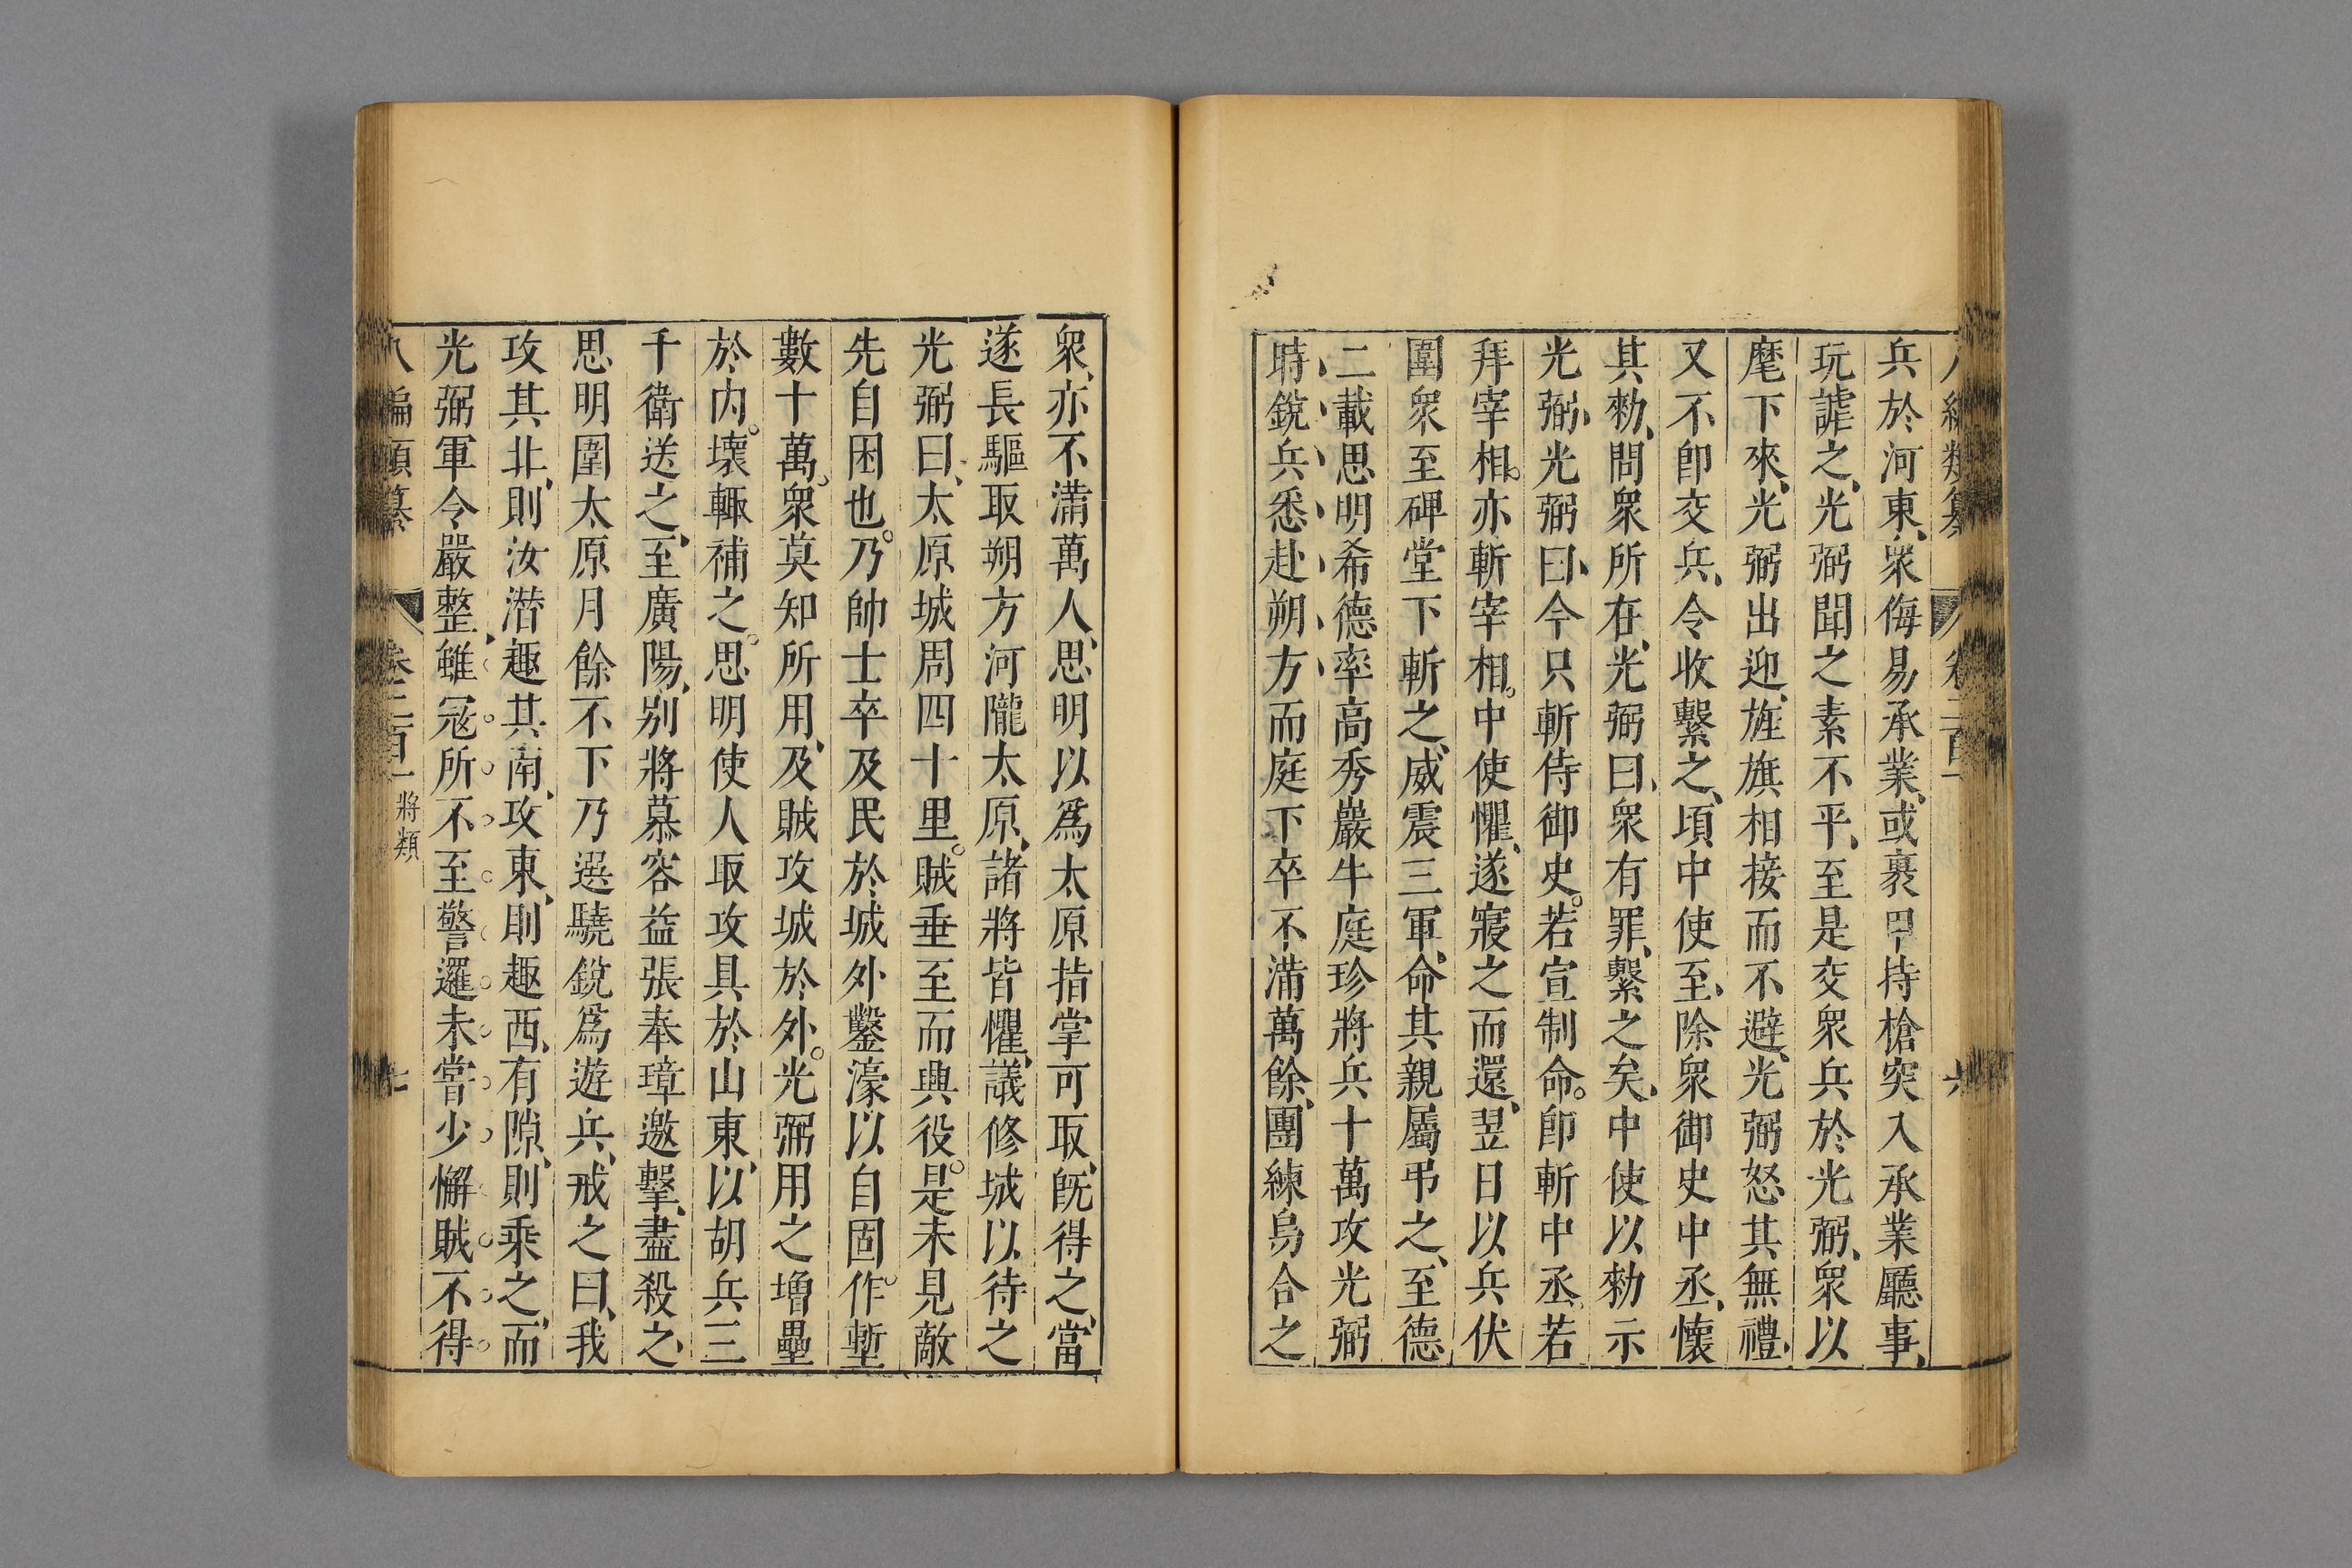 兵於河東、衆侮易承業、或裹甲持槍突入承業廳事、
玩謔之、光弼聞之素不平、至是交衆兵於光弼、衆以
麾下來、光弼出迎、旌旗相接而不避、光弼怒其無禮、
又不卽交兵、令收繫之、頃中使至、除衆御史中丞、懷
其勑、問衆所在、光弼曰、衆有罪、繫之矣、中使以勑示
光弼、光弼曰、今只斬侍御史。若宣制命。卽斬中丞、若
拜宰相。亦斬宰相。中使懼、遂寢之而還、翌日以兵伏
圍衆至碑堂下斬之、威震三軍、命其親屬弔之、至德
二載思明希德率高秀巖牛庭珍將兵十萬攻光弼
時銳兵悉赴朔方而庭下卒不滿萬餘、團練烏合之
衆、亦不滿萬人、思明以爲太原指掌可取、旣得之、當
遂長驅取朔方河隴太原、諸將皆懼、議修城以待之
光弼曰、太原城周四十里。賊垂至而興役。是未見敵
先自困也。乃帥士卒及民於城外鑿濠以自固。作塹
數十萬、衆莫知所用、及賊攻城於外。光弼用之增壘
於內。壞輒補之。思明使人取攻具於山東、以胡兵三
千衛送之、至廣陽、別將慕容益張奉璋邀擊、盡殺之
思明圍太原月餘不下乃選驍銳爲遊兵、戒之曰、我
攻其北、則汝潛趣其南、攻東、則趣西、有隙、則乘之、而
光弼軍令嚴整、雖冦所不至警邏未嘗少懈賊不得
八編類纂 卷二百一 將類 七